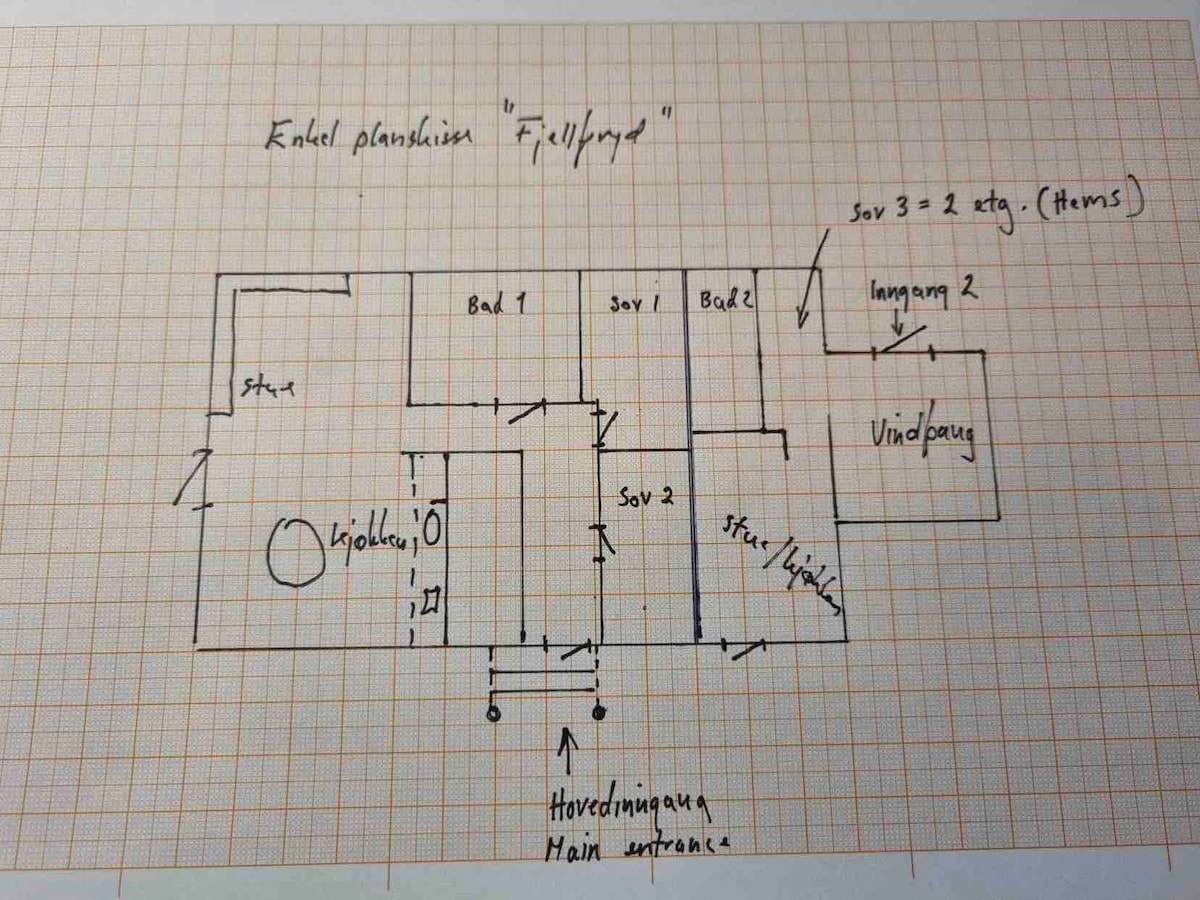 Enkel planskisse "Fjellfryd"
Sov 3 = 2 etg. (Hems)
Inngang 2
Bad 1
Sov 1
Bad 2
stue
Vindfang
Sov 2
kjøkken
stue/kjøkken
Hovedinngang
Main entrance